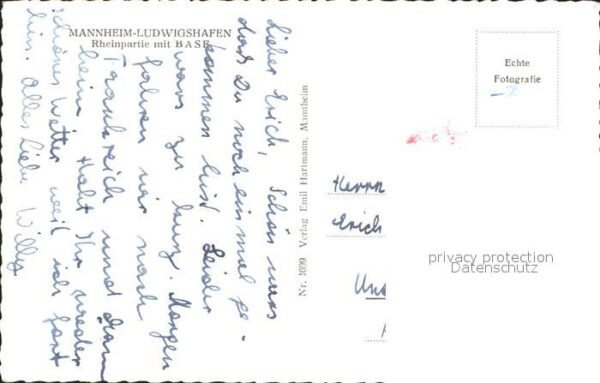 MANNHEIM-LUDWIGSHAFEN
Rheinpartie mit BASF
Lieber Erich, Schön wars
das Du noch einmal ge-
kommen bist. Leider
wars zu kurz. Morgen
fahren wir nach
Frankreich und dann
heim. Habt Ihr wieder
schönes Wetter weil ich fort
bin. Alles Liebe Willy
Nr. 1699 Verlag Emil Hartmann, Mannheim
Echte
Fotografie
Herrn
Erich
privacy protection
Datenschutz